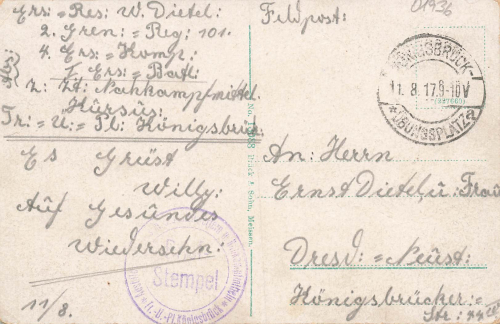 Ers:=Res: W. Dietel:
2. Gren:=Reg: 101.
4. Ers:=Komp:
I. Ers:=Batl.
Abs:
z: Zt: Nahkampfmittel
Kürsus:
Tr:=U:=Pl: Königsbrück
Es Grüst
Willy:
Auf Gesundes
Wiedersehn:
11/8.
Feldpost:
01936
KÖNIGSBRÜCK-
11.8.17.8-10V
*ÜBUNGSPLATZ*
An: Herrn
Ernst Dietel u: Frau
Dresd:=Neust:
Königsbrücker:=
Str:
Stempel
Tr.-Ü.-Pl Königsbrück